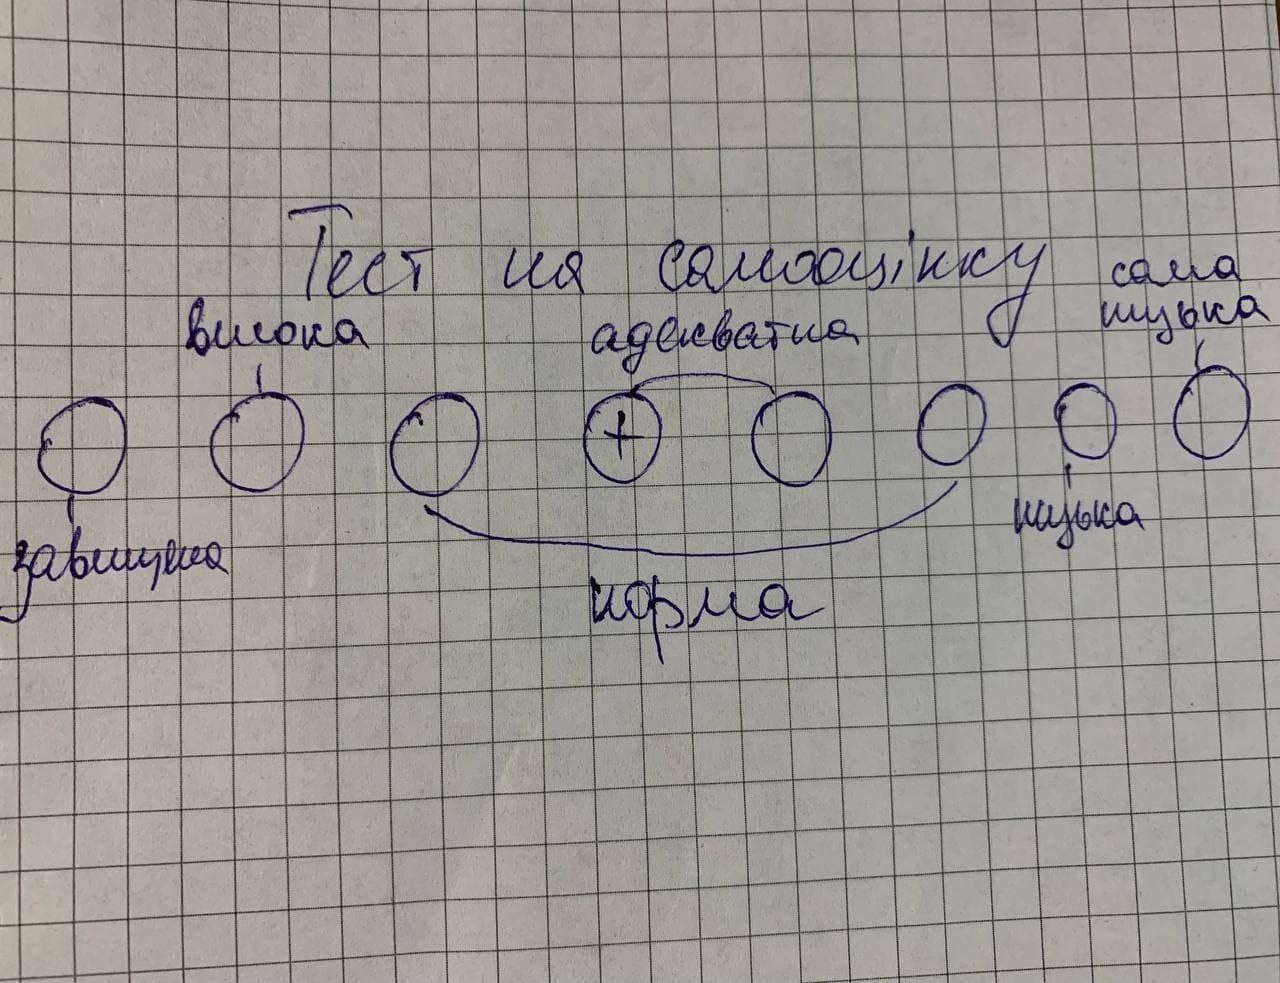 Тест на самооцінку
сама
низька
висока
адекватна
+
низька
завищена
норма